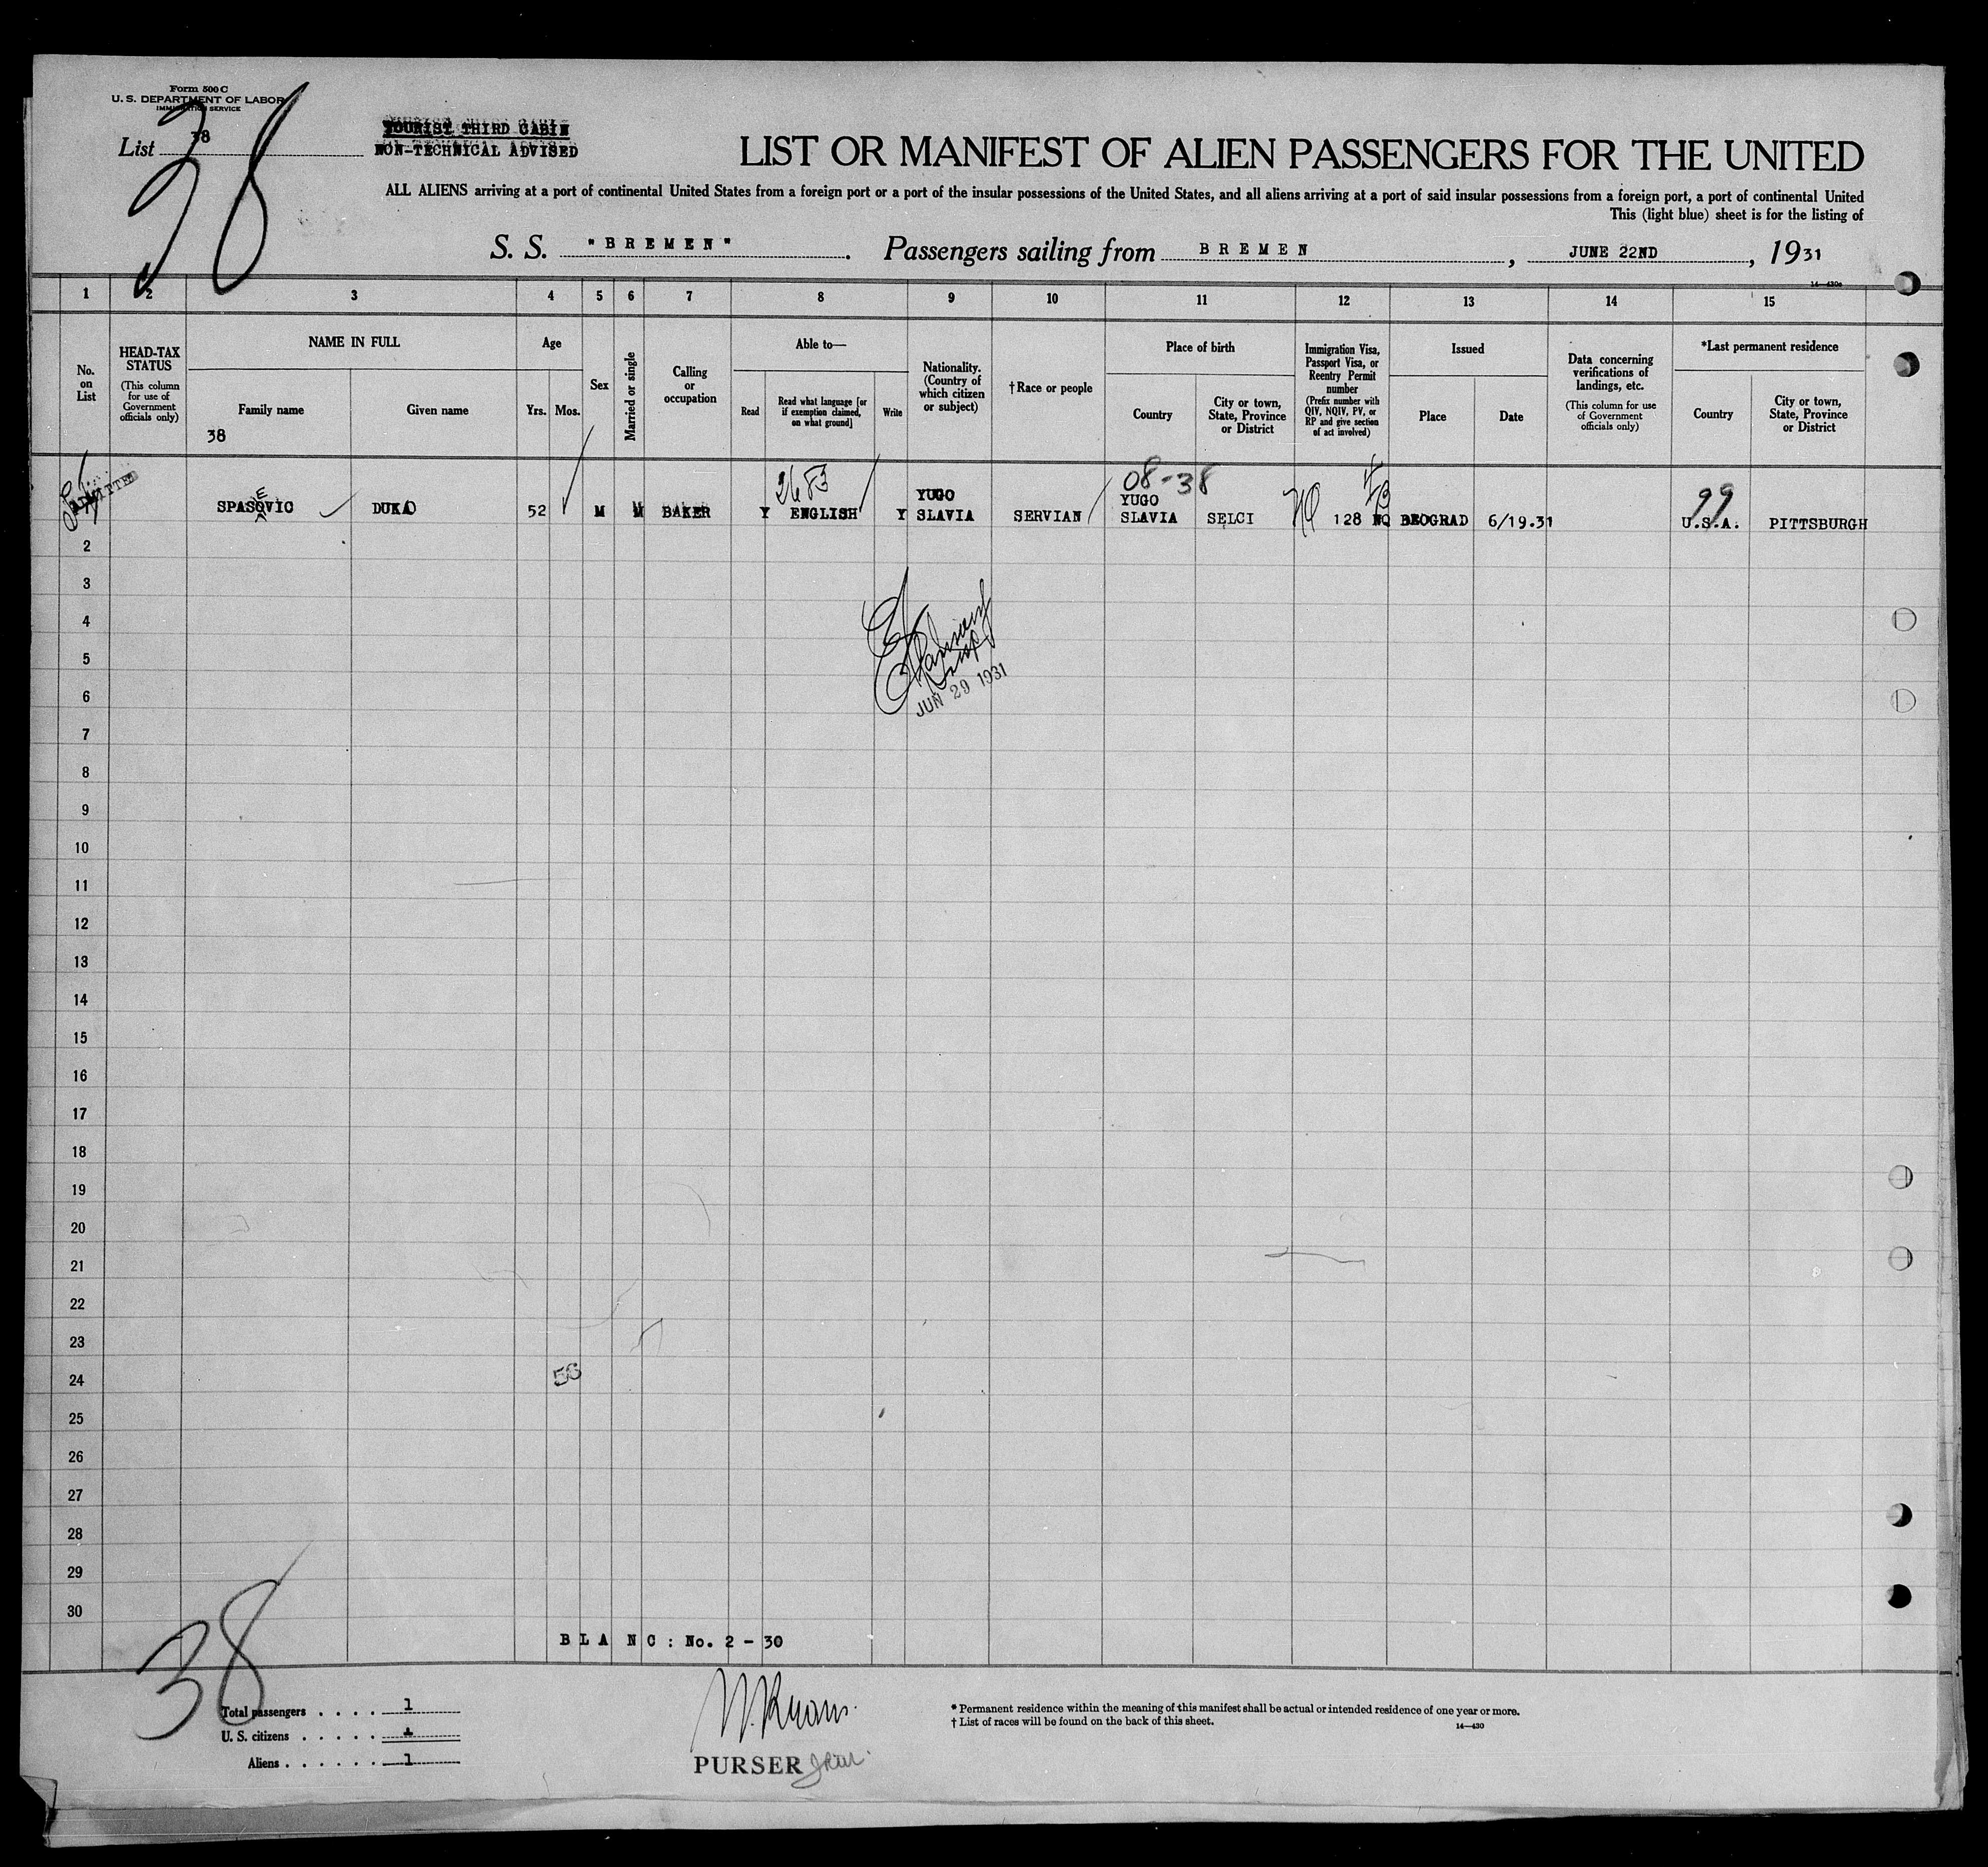 Form 500 C
U. S. DEPARTMENT OF LABOR
IMMIGRATION SERVICE
List 38
38
TOURIST THIRD CABIN
NON-TECHNICAL ADVISED
LIST OR MANIFEST OF ALIEN PASSENGERS FOR THE UNITED
ALL ALIENS arriving at a port of continental United States from a foreign port or a port of the insular possessions of the United States, and all aliens arriving at a port of said insular possessions from a foreign port, a port of continental United
This (light blue) sheet is for the listing of
S. S. "BREMEN". Passengers sailing from BREMEN, JUNE 22ND, 1931
1 2 3 4 5 6 7 8 9 10 11 12 13 14 15
No. on List
HEAD-TAX STATUS
(This column for use of Government officials only)
NAME IN FULL
Family name
Given name
38
Age
Yrs. Mos.
Sex
Married or single
Calling or occupation
Able to—
Read
Read what language [or if exemption claimed, on what ground]
Write
Nationality. (Country of which citizen or subject)
†Race or people
Place of birth
Country
City or town, State, Province or District
Immigration Visa, Passport Visa, or Reentry Permit number
(Prefix number with QIV, NQIV, PV, or RP and give section of act involved)
Issued
Place
Date
Data concerning verifications of landings, etc.
(This column for use of Government officials only)
*Last permanent residence
Country
City or town, State, Province or District
ADMITTED
2653 08-38 99
E
SPASOVIC DUKA 52 M M BAKER Y ENGLISH Y YUGO SLAVIA SERVIAN YUGO SLAVIA SELCI 128 NQ BEOGRAD 6/19.31 U.S.A. PITTSBURGH
2
3
4
5
6
JUN 29 1931
7
8
9
10
11
12
13
14
15
16
17
18
19
20
21
22
23
24
56
25
26
27
28
29
30
BLANC: No. 2 - 30
38
Total passengers . . . . 1
U. S. citizens . . . . .
Aliens . . . . . . 1
PURSER
* Permanent residence within the meaning of this manifest shall be actual or intended residence of one year or more.
† List of races will be found on the back of this sheet.
14—430